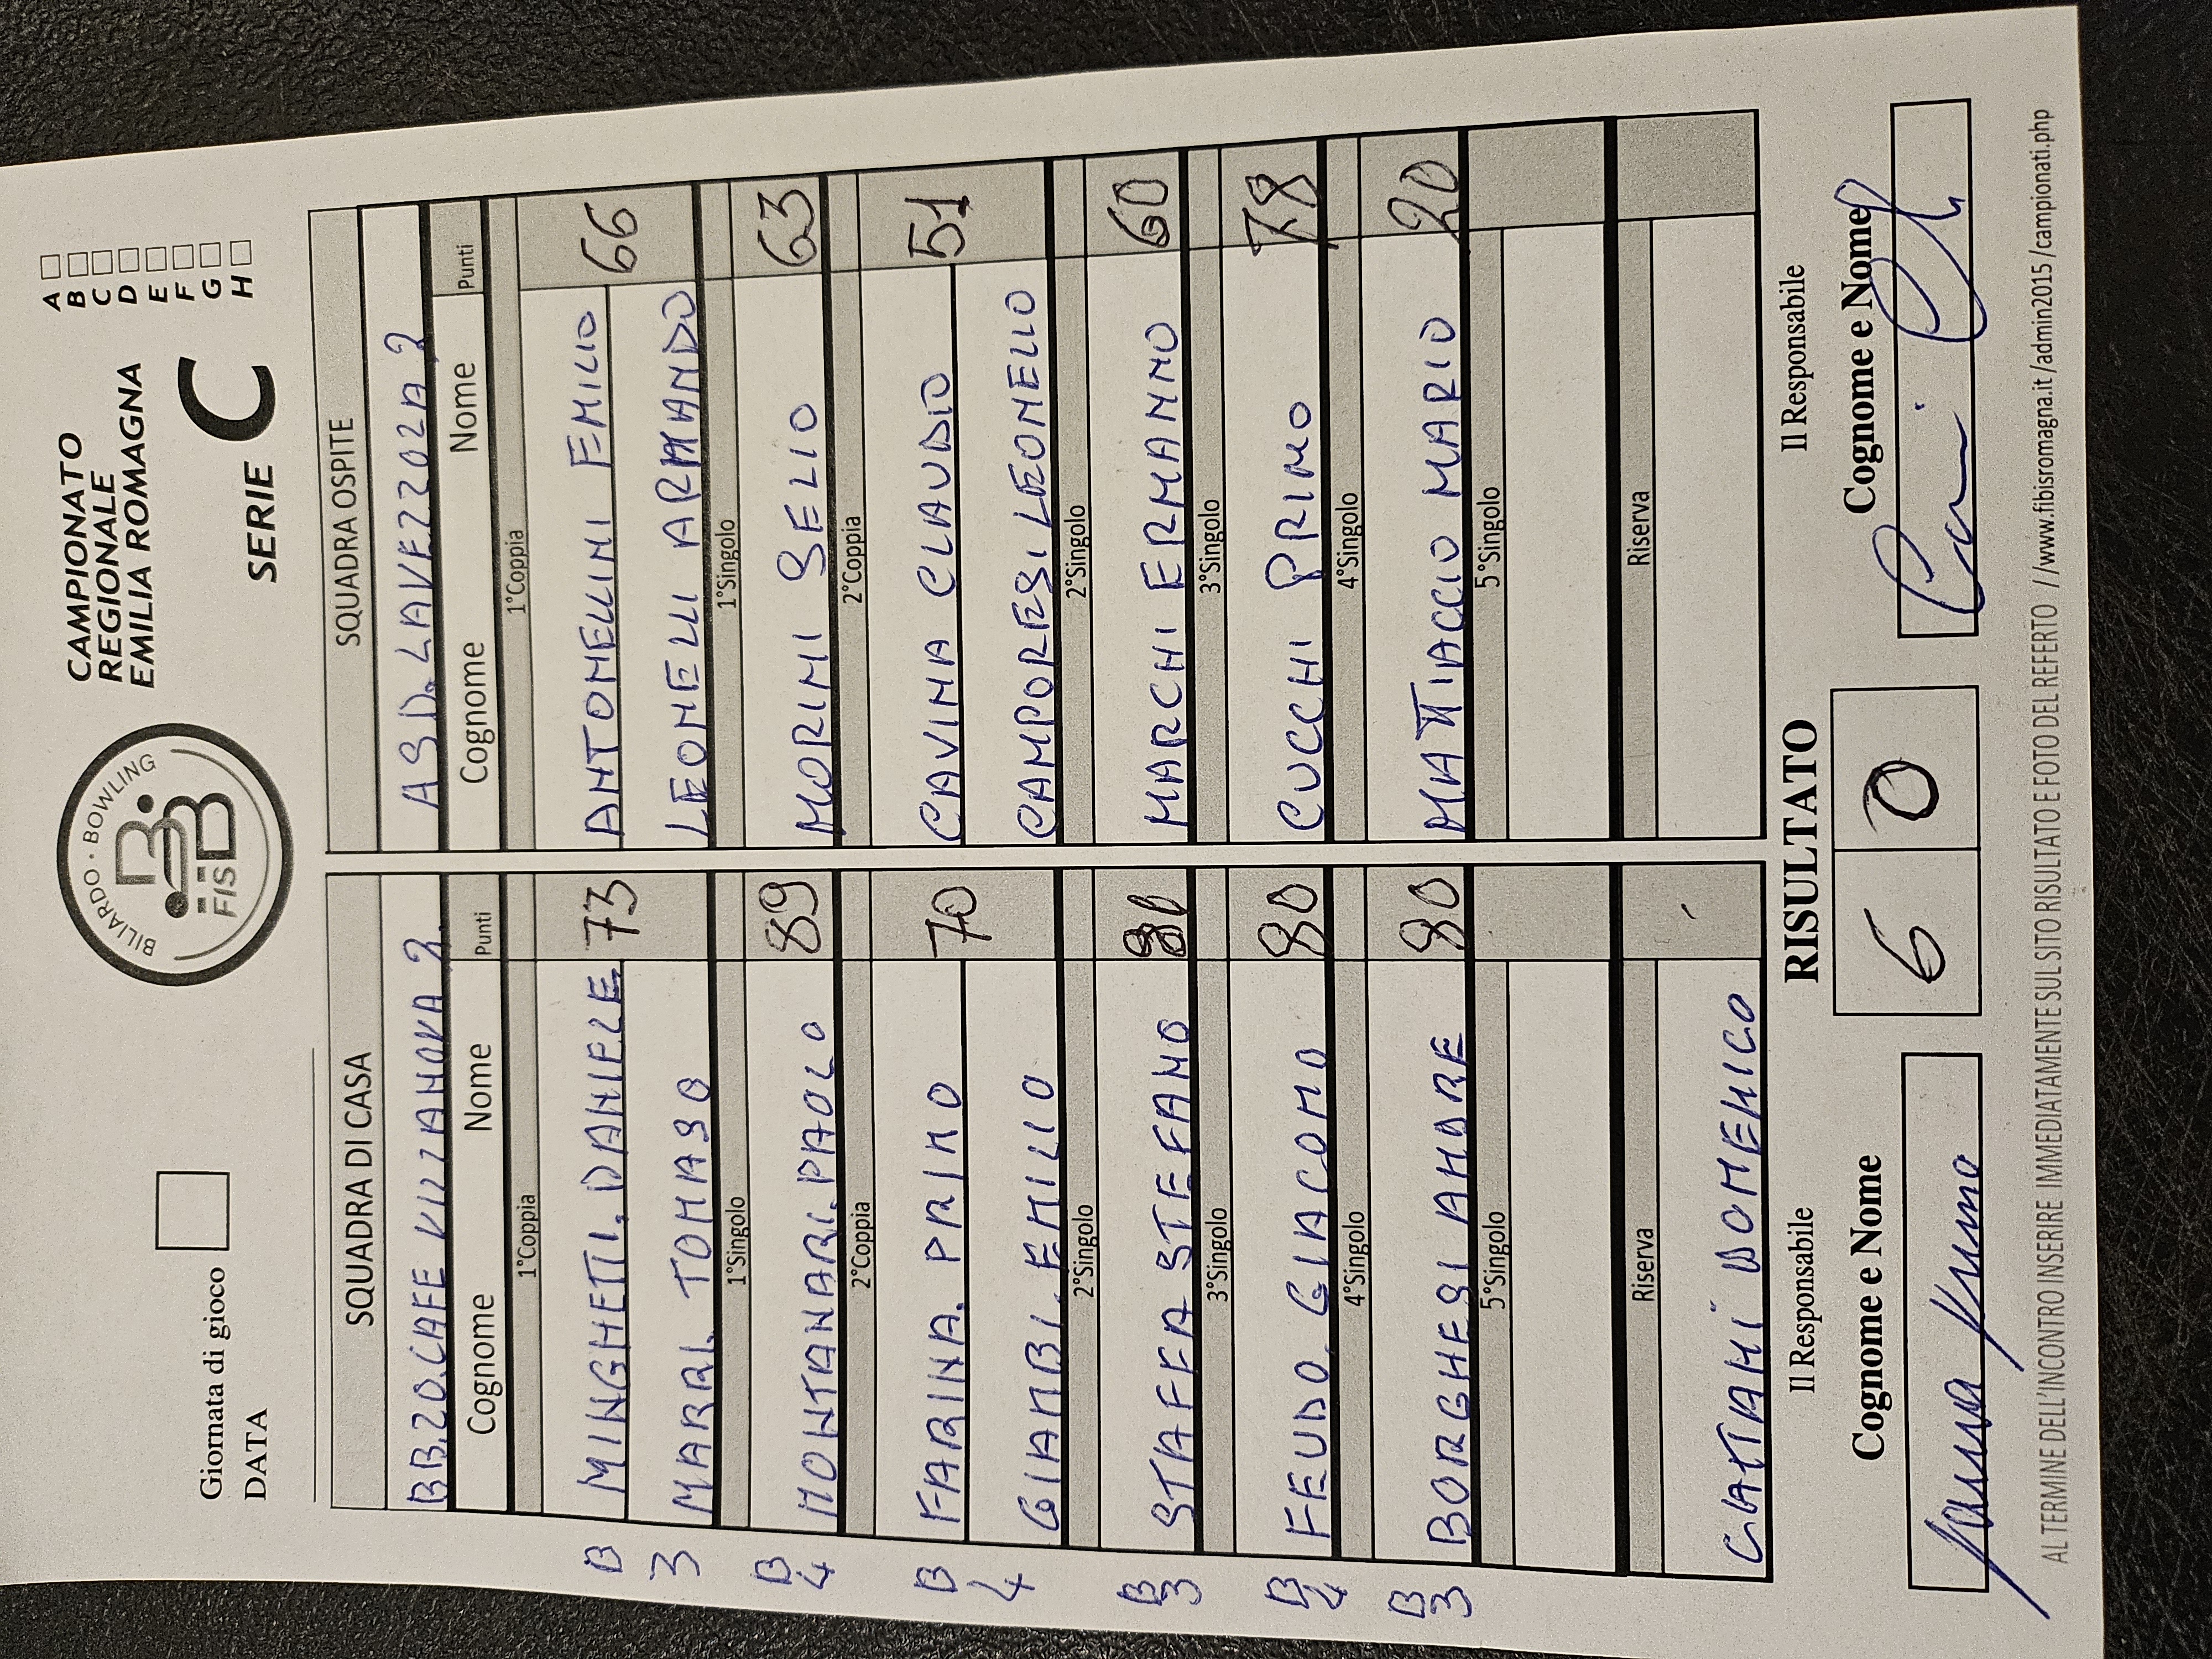 Giornata di gioco
DATA
BILIARDO · BOWLING
FISBB
CAMPIONATO
REGIONALE
EMILIA ROMAGNA
SERIE C
A
B
C
D
E
F
G
H
SQUADRA DI CASA
BB.20.CAFE VILLANOVA 2
Cognome Nome Punti
1°Coppia
B MINGHETTI. DANIELE 73
3 MARRI. TOMASO
1°Singolo
B4 MONTANARI. PAOLO 89
2°Coppia
B FARINA. PRIMO 70
4 GIAMBI. EMILIO
2°Singolo
B3 STAFFA STEFANO
3°Singolo
B4 FEUDO. GIACOMO 80
4°Singolo
B3 BORGHESI ANDRE 80
5°Singolo
Riserva
GATTANI DOMENICO
SQUADRA OSPITE
ASD. LAVEZZOLA 2
Cognome Nome Punti
1°Coppia
ANTONELLINI EMILIO 66
LEONELLI ARMANDO
1°Singolo
MORINI SELIO 63
2°Coppia
CAVINA CLAUDIO 51
CAMPORESI LEONELLO
2°Singolo
MARCHI ERMANNO 60
3°Singolo
CUCCHI PRIMO 78
4°Singolo
MATTIACCIO MARIO 20
5°Singolo
Riserva
Il Responsabile
Cognome e Nome
RISULTATO
6 0
Il Responsabile
Cognome e Nome
AL TERMINE DELL'INCONTRO INSERIRE IMMEDIATAMENTE SUL SITO RISULTATO E FOTO DEL REFERTO //www.fibisromagna.it/admin2015/campionati.php